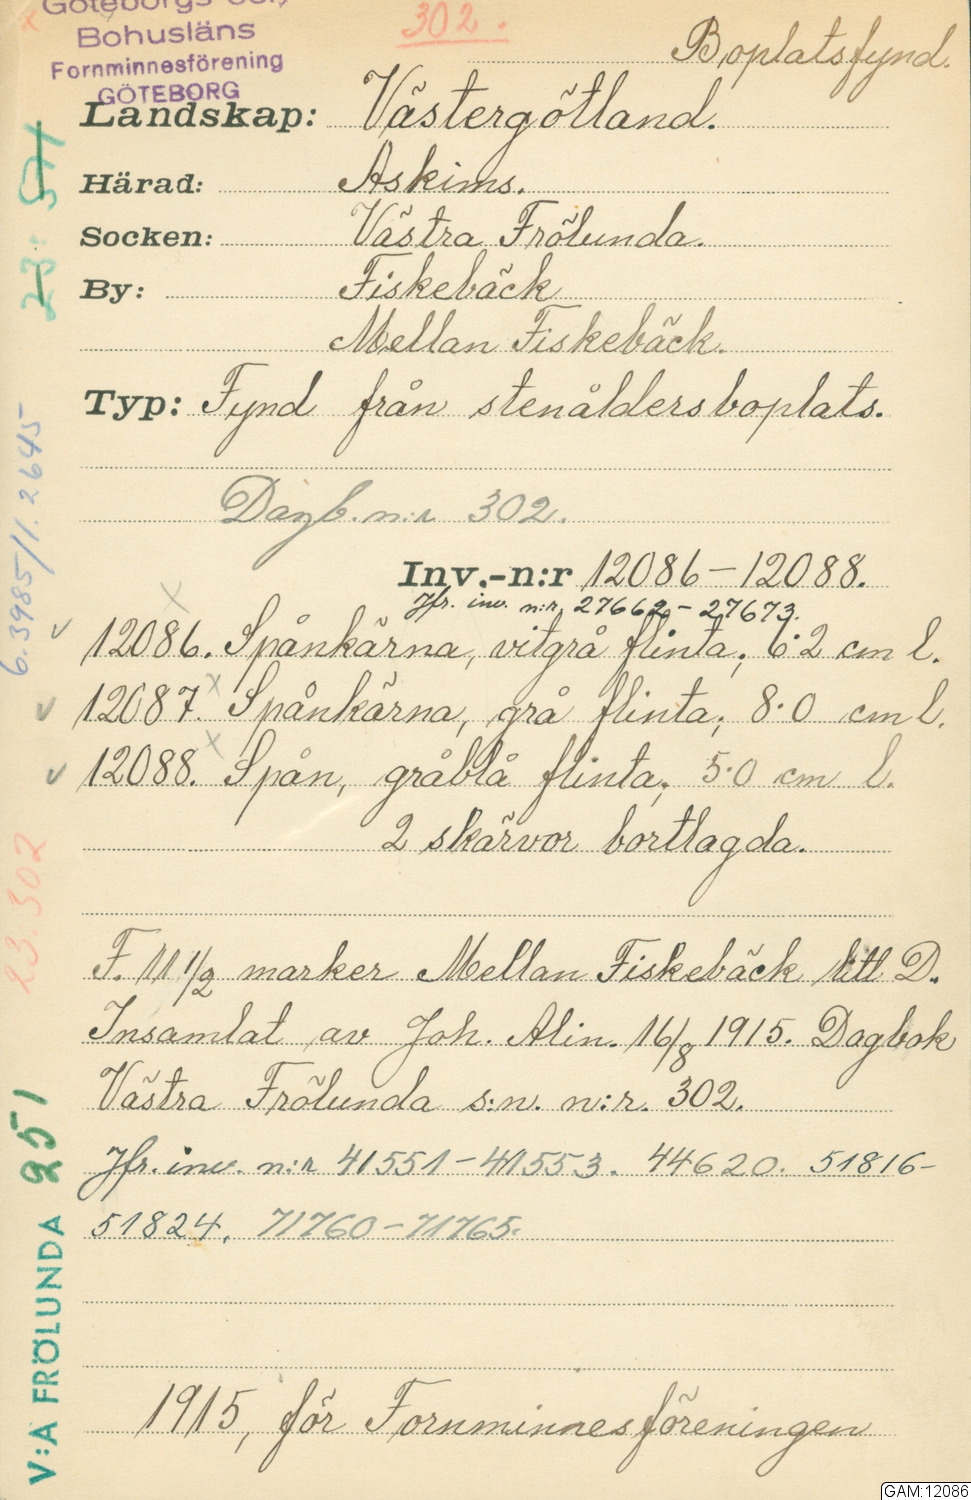 Göteborgs och
Bohusläns
Fornminnesförening
GÖTEBORG
302.
Boplatsfynd.
Landskap: Västergötland.
Härad: Askims.
Socken: Västra Frölunda.
By: Fiskebäck
Mellan Fiskebäck.
Typ: Fynd från stenåldersboplats.
Dagb. n:r 302.
Inv.-n:r 12086-12088.
Jfr. inv. n:r 27662-27673.
12086. Spånkärna, vitgrå flinta; 6·2 cm l.
12087. Spånkärna, grå flinta; 8·0 cm l.
12088. Spån, gråblå flinta; 5·0 cm l.
2 skärvor bortlagda.
F. 11 1/2 marker Mellan Fiskebäck litt D.
Insamlat av Joh. Alin. 16/8 1915. Dagbok
Västra Frölunda s:n. n:r. 302.
Jfr. inv. n:r 41551-41553. 44620. 51816-
51824. 71760-71765.
1915, för Fornminnesföreningen
23: 571
6.3985/1.2645
23:302
V:A FRÖLUNDA 251
GAM:12086